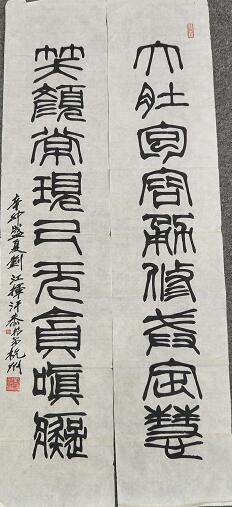 大肚包容勤修戒定慧
笑顏常現已无貪嗔癡
辛卯盛夏劉江揮汗恭
杭州